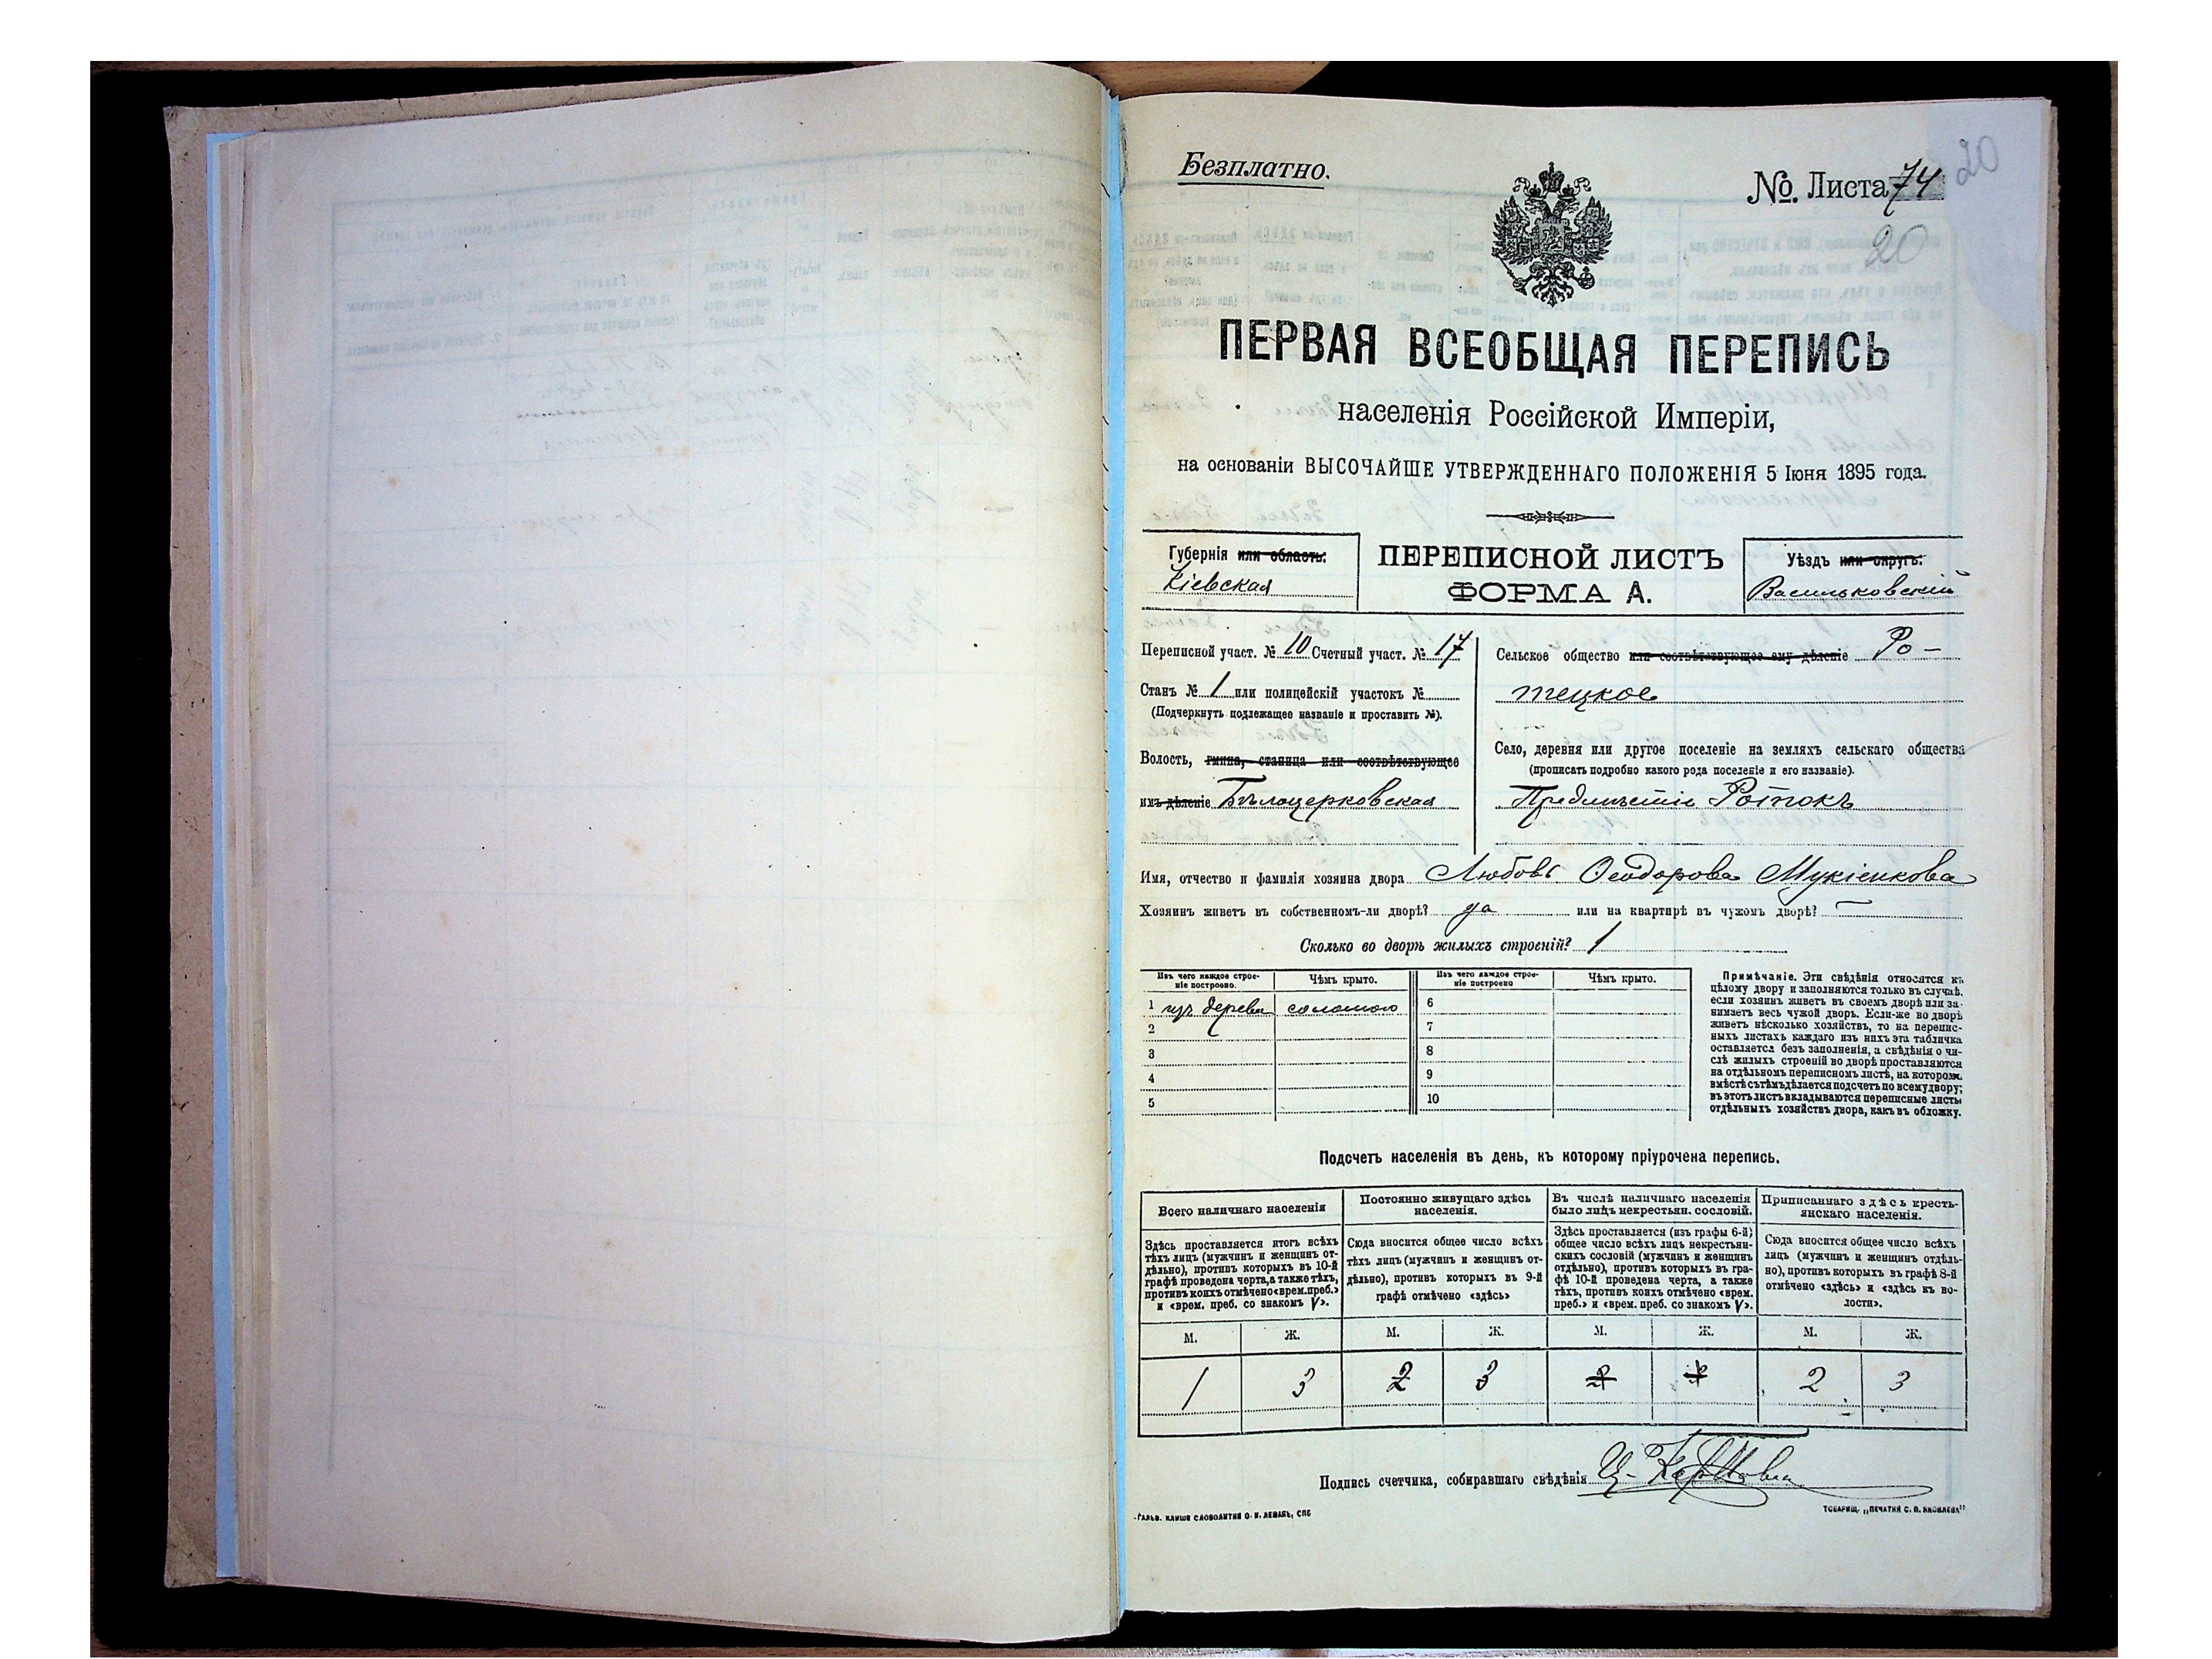 Безплатно.
№. Листа 74
20
20
ПЕРВАЯ ВСЕОБЩАЯ ПЕРЕПИСЬ
населенія Россійской Имперіи,
на основаніи ВЫСОЧАЙШЕ УТВЕРЖДЕННАГО ПОЛОЖЕНІЯ 5 Іюня 1895 года.
Губернія или область:
Кіевская
ПЕРЕПИСНОЙ ЛИСТЪ
ФОРМА А.
Уѣздъ или округъ:
Васильковскій
Переписной участ. № 10 Счетный участ. № 17
Станъ № 1 или полицейскій участокъ №
(Подчеркнуть подлежащее названіе и проставить №).
Волость, гмина, станица или соотвѣтствующее
имъ дѣленіе Бѣлоцерковская
Сельское общество или соотвѣтствующее ему дѣленіе Ро-
тецкое
Село, деревня или другое поселеніе на земляхъ сельскаго общества
(прописать подробно какого рода поселеніе и его названіе).
Предмѣстіе Ротокъ
Имя, отчество и фамилія хозяина двора Любовь Ѳеодорова Мукіенкова
Хозяинъ живетъ въ собственномъ-ли дворѣ? да или на квартирѣ въ чужомъ дворѣ? —
Сколько во дворѣ жилыхъ строеній? 1
Изъ чего каждое строе-
ніе построено.
Чѣмъ крыто.
Изъ чего каждое строе-
ніе построено
Чѣмъ крыто.
1 изъ дерева соломою 6
2 7
3 8
4 9
5 10
Примѣчаніе. Эти свѣдѣнія относятся къ
цѣлому двору и заполняются только въ случаѣ,
если хозяинъ живетъ въ своемъ дворѣ или за-
нимаетъ весь чужой дворъ. Если-же во дворѣ
живетъ нѣсколько хозяйствъ, то на перепис-
ныхъ листахъ каждаго изъ нихъ эта табличка
оставляется безъ заполненія, а свѣдѣнія о чи-
слѣ жилыхъ строеній во дворѣ проставляются
на отдѣльномъ переписномъ листѣ, на которомъ
вмѣстѣ съ тѣмъ дѣлается подсчетъ по всему двору;
въ этотъ листъ вкладываются переписные листы
отдѣльныхъ хозяйствъ двора, какъ въ обложку.
Подсчетъ населенія въ день, къ которому пріурочена перепись.
Всего наличнаго населенія
Здѣсь проставляется итогъ всѣхъ
тѣхъ лицъ (мужчинъ и женщинъ от-
дѣльно), противъ которыхъ въ 10-й
графѣ проведена черта, а также тѣхъ,
противъ коихъ отмѣчено «врем. преб.»
и «врем. преб. со знакомъ V».
Постоянно живущаго здѣсь
населенія.
Сюда вносится общее число всѣхъ
тѣхъ лицъ (мужчинъ и женщинъ от-
дѣльно), противъ которыхъ въ 9-й
графѣ отмѣчено «здѣсь»
Въ числѣ наличнаго населенія
было лицъ некрестьян. сословій.
Здѣсь проставляется (изъ графы 6-й)
общее число всѣхъ лицъ некрестьян-
скихъ сословій (мужчинъ и женщинъ
отдѣльно), противъ которыхъ въ гра-
фѣ 10-й проведена черта, а также
тѣхъ, противъ коихъ отмѣчено «врем.
преб.» и «врем. преб. со знакомъ V».
Приписаннаго здѣсь кресть-
янскаго населенія.
Сюда вносится общее число всѣхъ
лицъ (мужчинъ и женщинъ отдѣль-
но), противъ которыхъ въ графѣ 8-й
отмѣчено «здѣсь» и «здѣсь къ во-
лости».
М. Ж. М. Ж. М. Ж. М. Ж.
1 3 2 3 2 3
Подпись счетчика, собиравшаго свѣдѣнія
ГАЛЬВ. КЛИШЕ СЛОВОЛИТНИ О. И. ЛЕМАНЪ, СПБ
ТОВАРИЩ. „ПЕЧАТНЯ С. П. ЯКОВЛЕВА"